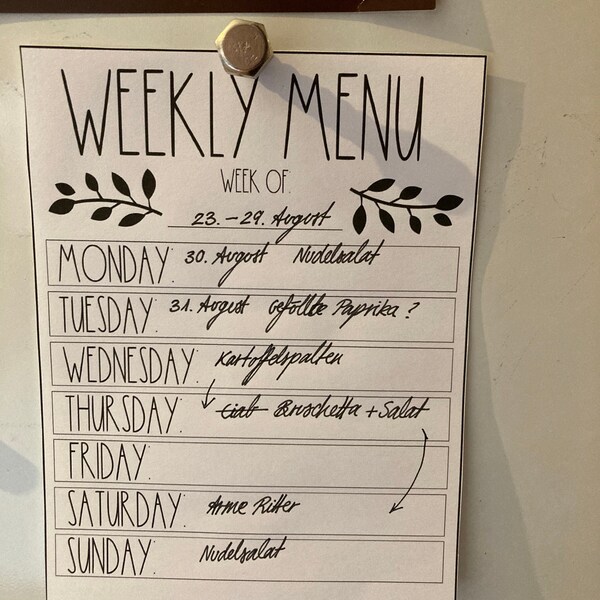 WEEKLY MENU
WEEK OF:
23. – 29. August
MONDAY: 30. August Nudelsalat
TUESDAY: 31. August Gefüllte Paprika ?
WEDNESDAY: Kartoffelspalten
THURSDAY: Ciab Bruschetta + Salat
FRIDAY:
SATURDAY: Arme Ritter
SUNDAY: Nudelsalat